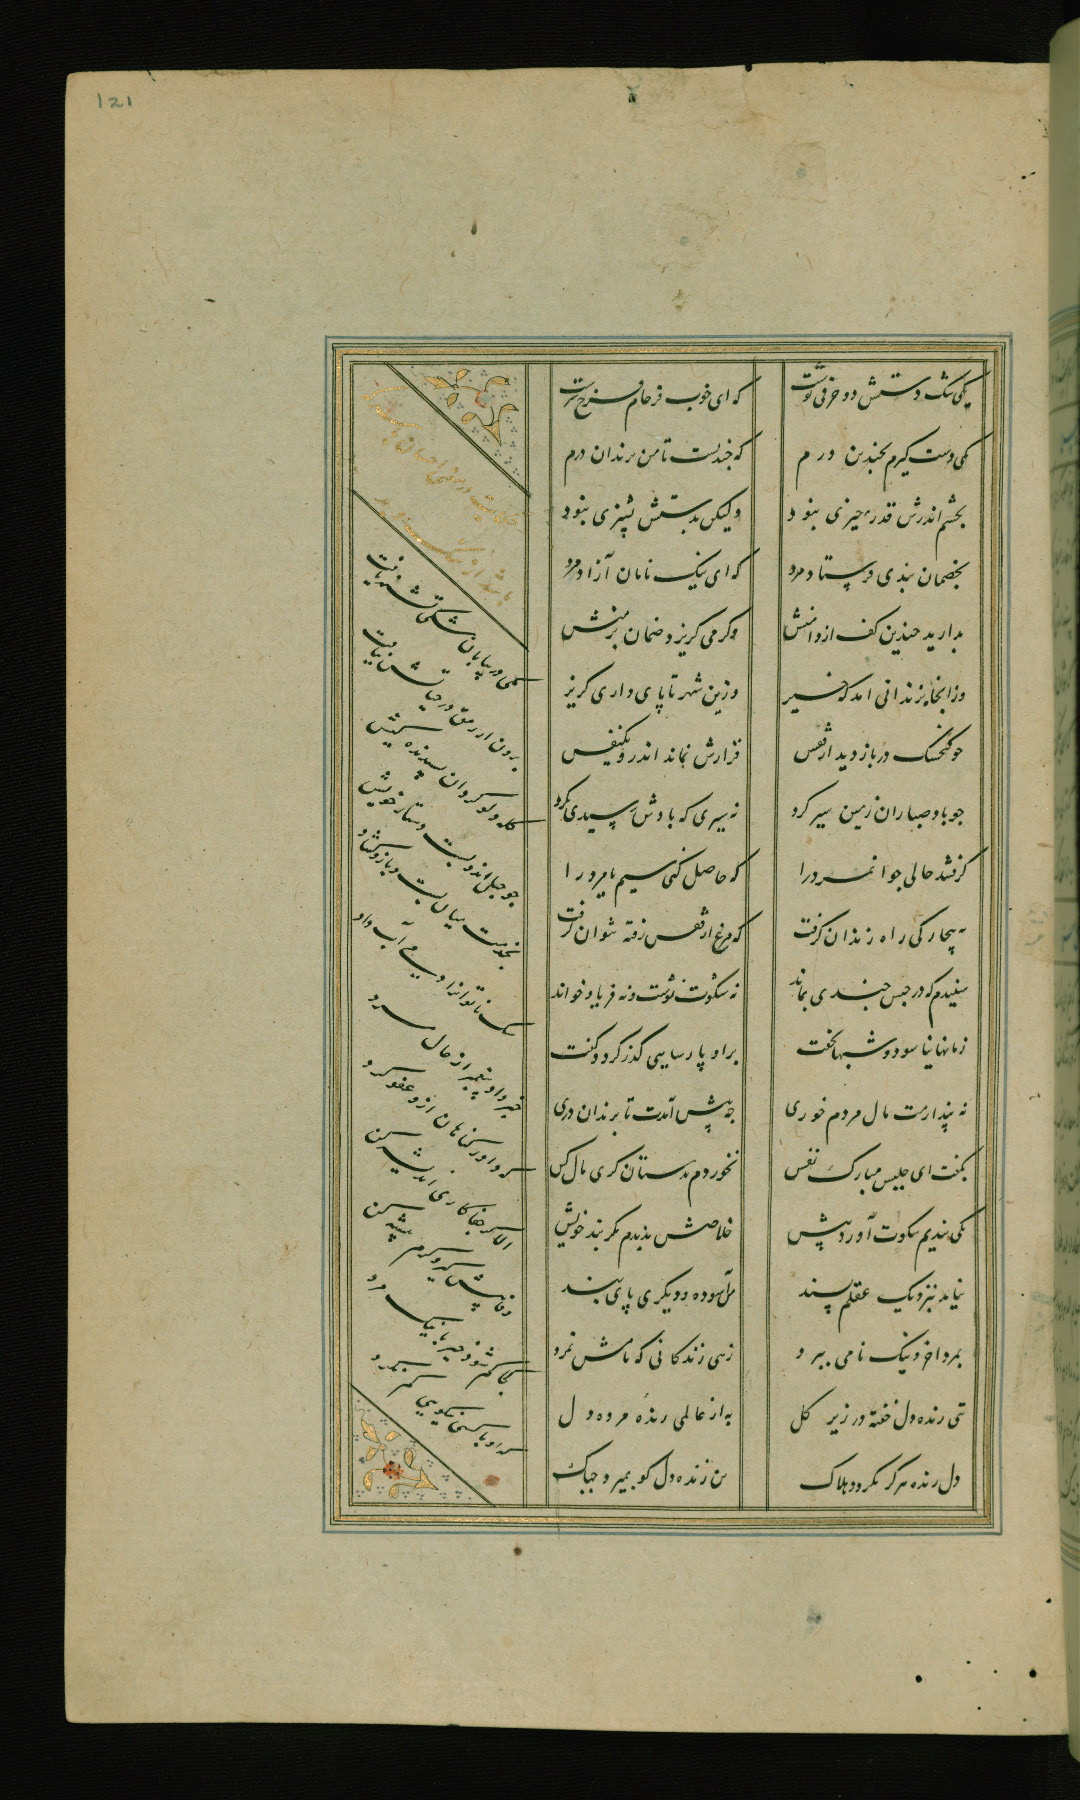 121
یکی تنگ دستش دو حرفی نوشت
که ای خوب فرجام فرخ سرشت
یکی دست گیرم بچندین درم
که چندیست تا من بزندان درم
بچشم اندرش قدر چیزی نبود
ولیکن بدستش پشیزی نبود
بخصمان بندی فرستاد مرد
که ای نیک نامان آزاد مرد
بدارید چندین کف از دامنش
وگر می گریزد ضمان بر منش
وز آنجا بزندانی آمد که خیز
وزین شهر تا پای داری گریز
چو گنجشک در باز دید از قفس
قرارش نماند اندرو یکنفس
چو باد صبا زان زمین سیر کرد
نه سیری که بادش رسیدی بگرد
گرفتند حالی جوانمرد را
که حاصل کنی سیم یا مرد را
به بیچارگی راه زندان گرفت
که مرغ از قفس رفته نتوان گرفت
شنیدم که در حبس چندی بماند
نه شکوت نوشت و نه فریاد خواند
زمانها نیاسود و شبها نخفت
برو پارسایی گذر کرد و گفت
نه پندارمت مال مردم خوری
چه پیش آمدت تا بزندان دری
بگفت ای جلیس مبارک نفس
نخوردم بدستان گری مال کس
یکی بندیم شکوت آورد پیش
خلاصش ندیدم مگر بند خویش
نیامد بنزدیک عقلم پسند
من آسوده و دیگری پای بند
بمرد آخر و نیک نامی ببرد
زهی زندگانی که نامش نمرد
تنی زنده دل خفته در زیر گل
به از عالمی زنده مرده دل
دل زنده هرگز نگردد هلاک
تن زنده دل گو بمیرد چه باک
یکی در بیابان سگی تشنه یافت
برون از رمق در حیاتش نیافت
کله دلو کرد آن پسندیده کیش
چو حبل اندرو بست دستار خویش
بخدمت میان بست و بازو گشاد
سگ ناتوان را دمی آب داد
خبر داد پیغمبر از حال مرد
که داور گناهان ازو عفو کرد
الا گر جفاکاری اندیشه کن
وفا پیش گیر و کرم پیشه کن
کجا گم شود خیر با نیک مرد
کسی با سگی نیکویی گم نکرد